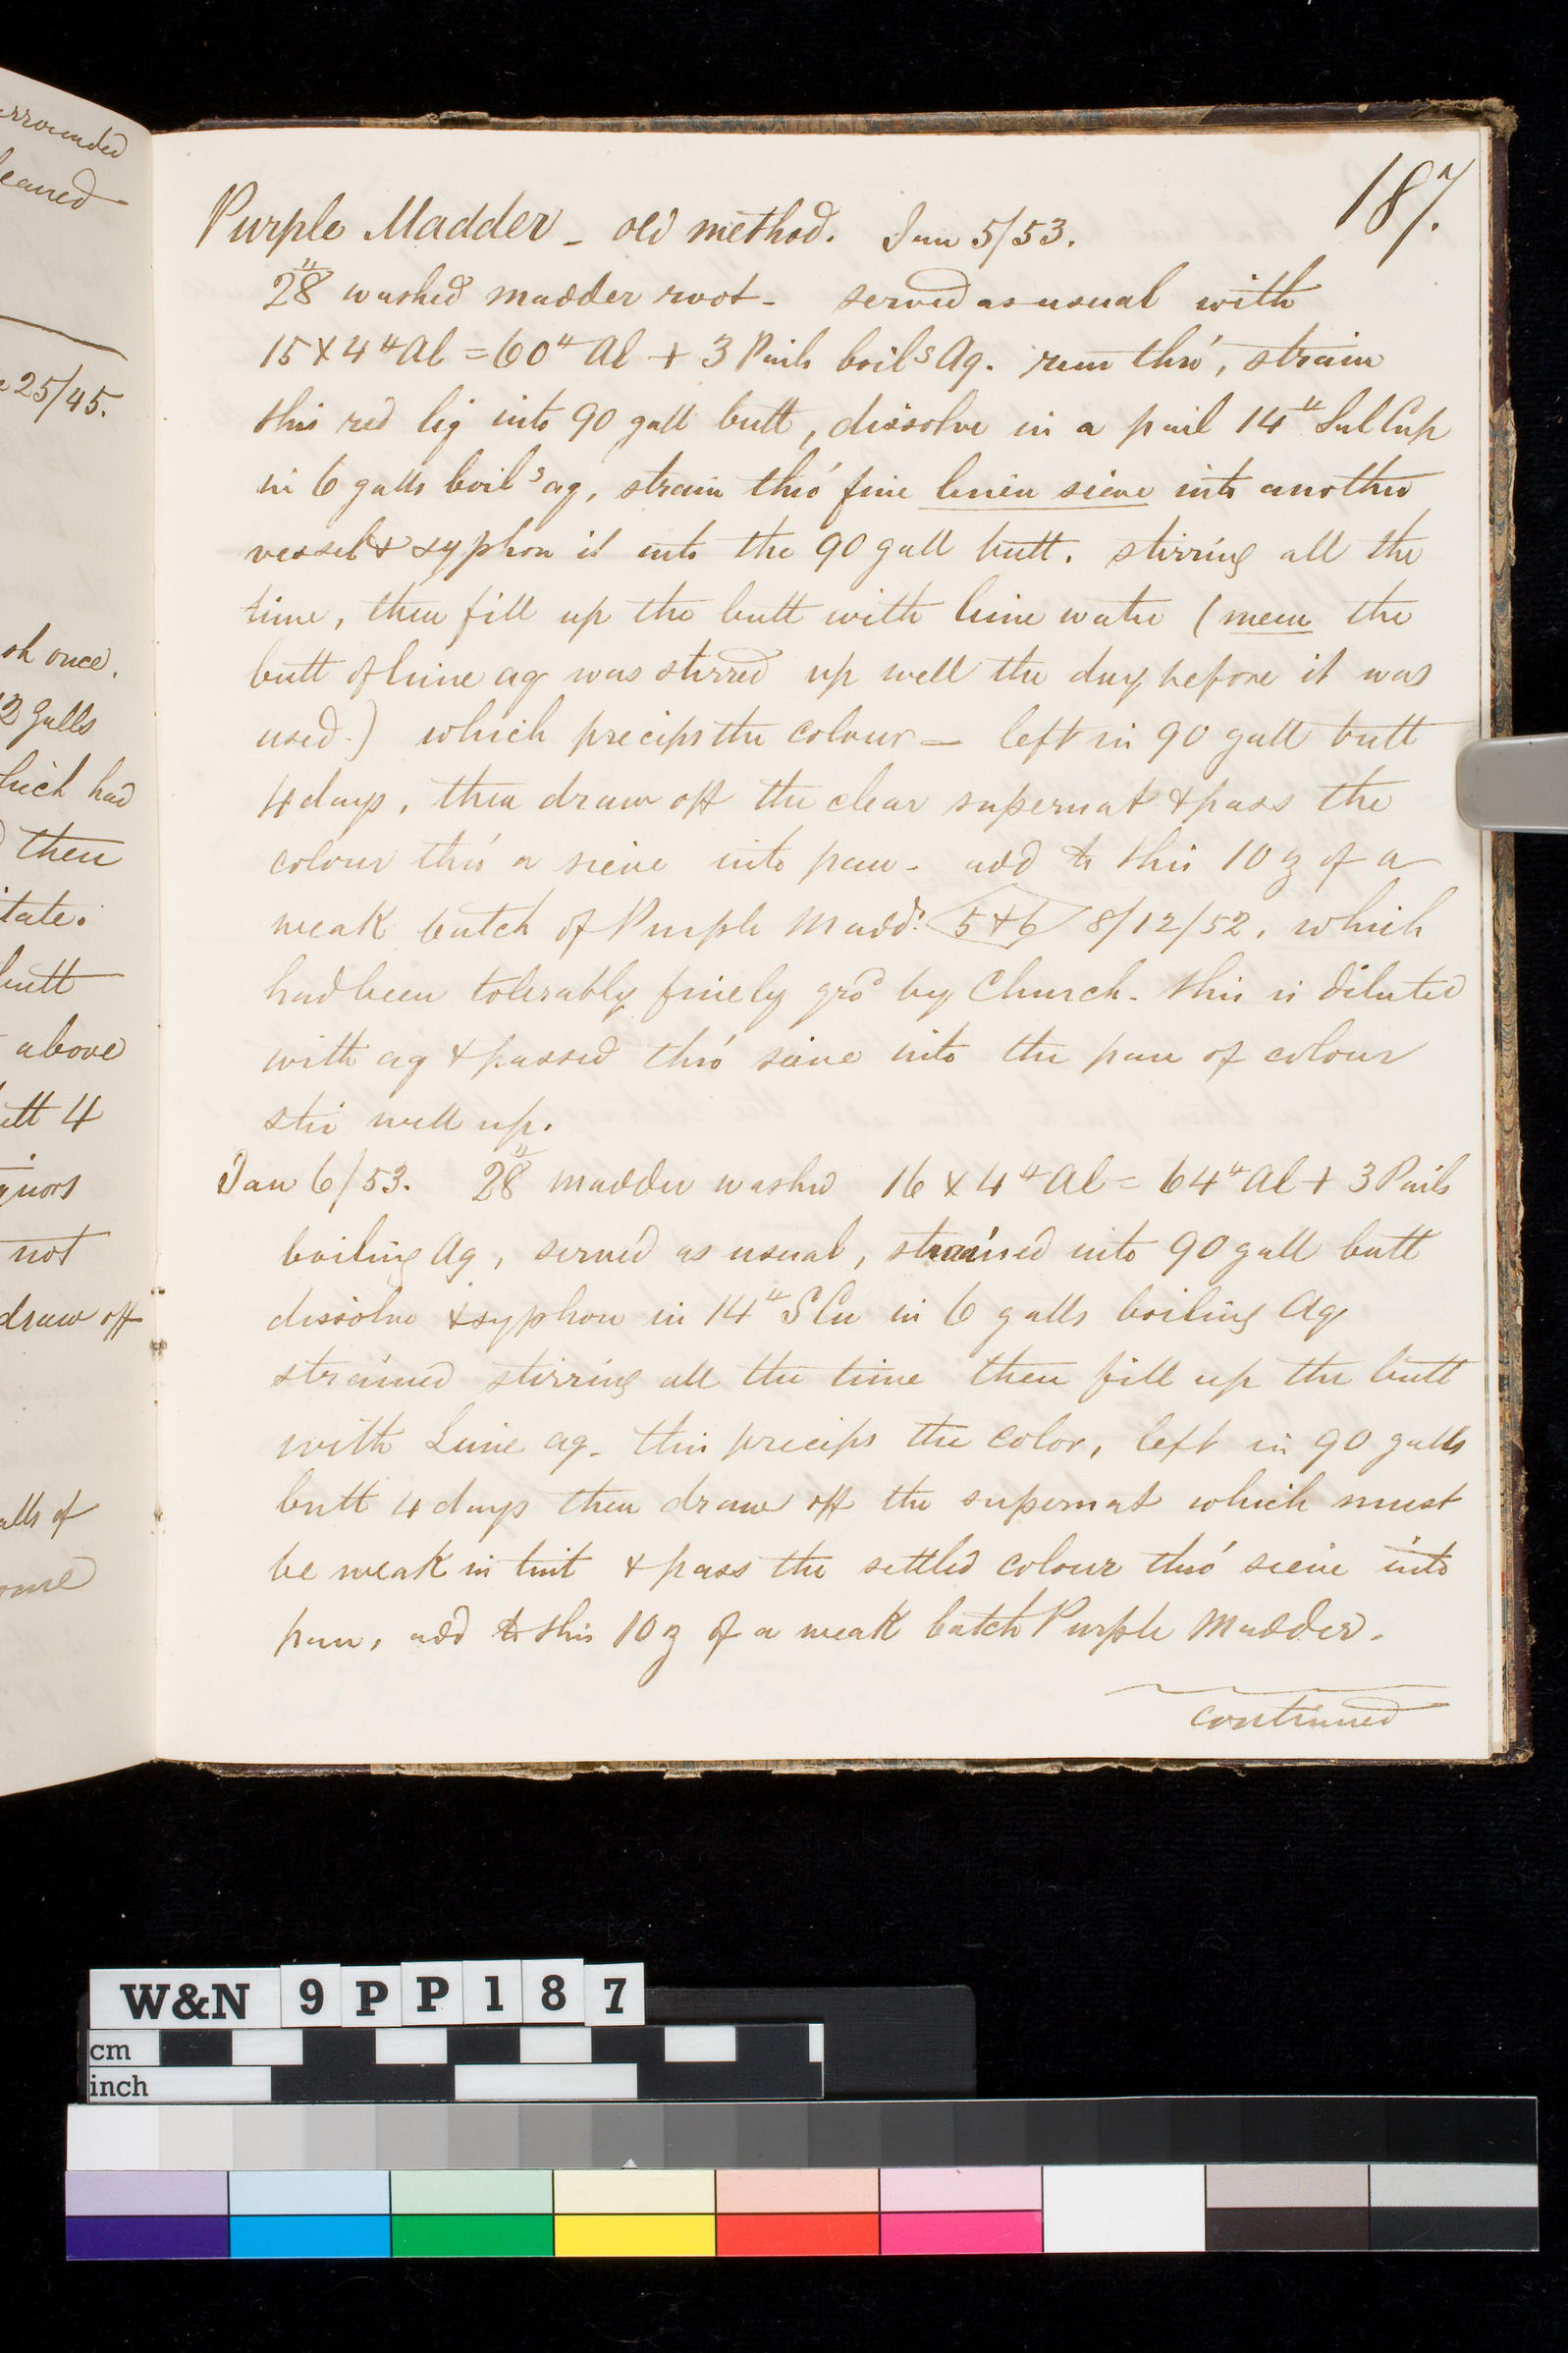 rrounded
leaned
25/45.
sh once.
2 galls
hich had
then
itate.
butt
above
utt 4
quors
not
draw off
alls of
ome
187.
Purple Madder _ old method. Jan 5/53.
28" washed madder root - served as usual with
15 x 4 " Al = 60" Al + 3 Pails boilg Aq. run thro', strain
this red liq into 90 gall butt, dissolve in a pail 14" Sul Cup
in 6 galls boilg aq, strain thro' fine linen sieve into another
vessel & syphon it into the 90 gall butt. stirring all the
time, then fill up the butt with lime water (mem the
butt of lime aq was stirred up well the day before it was
used.) which precips the colour — left in 90 gall butt
4 days, then draw off the clear supernat & pass the
colour thro' a sieve into pan - add to this 10 z of a
weak batch of Purple Maddr. 5 & 6 8/12/52, which
had been tolerably finely grod by Church. this is diluted
with aq & passed thro' sieve into the pan of colour
stir well up.
Jan 6/53. 28" madder washed 16 x 4 " Al = 64" Al + 3 Pails
boiling Aq, served as usual, strained into 90 gall butt
dissolve & syphon in 14" S Cu in 6 galls boiling Aq
strained stirring all the time then fill up the butt
with Lime aq. this precips the color, left in 90 galls
butt 4 days then draw off the supernat which must
be weak in tint & pass the settled colour thro' sieve into
pan, add to this 10 z of a weak batch Purple Madder.
continued
W&N 9PP187
cm
inch